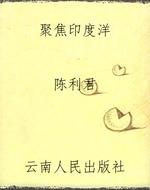 聚焦印度洋
陈利君
云南人民出版社